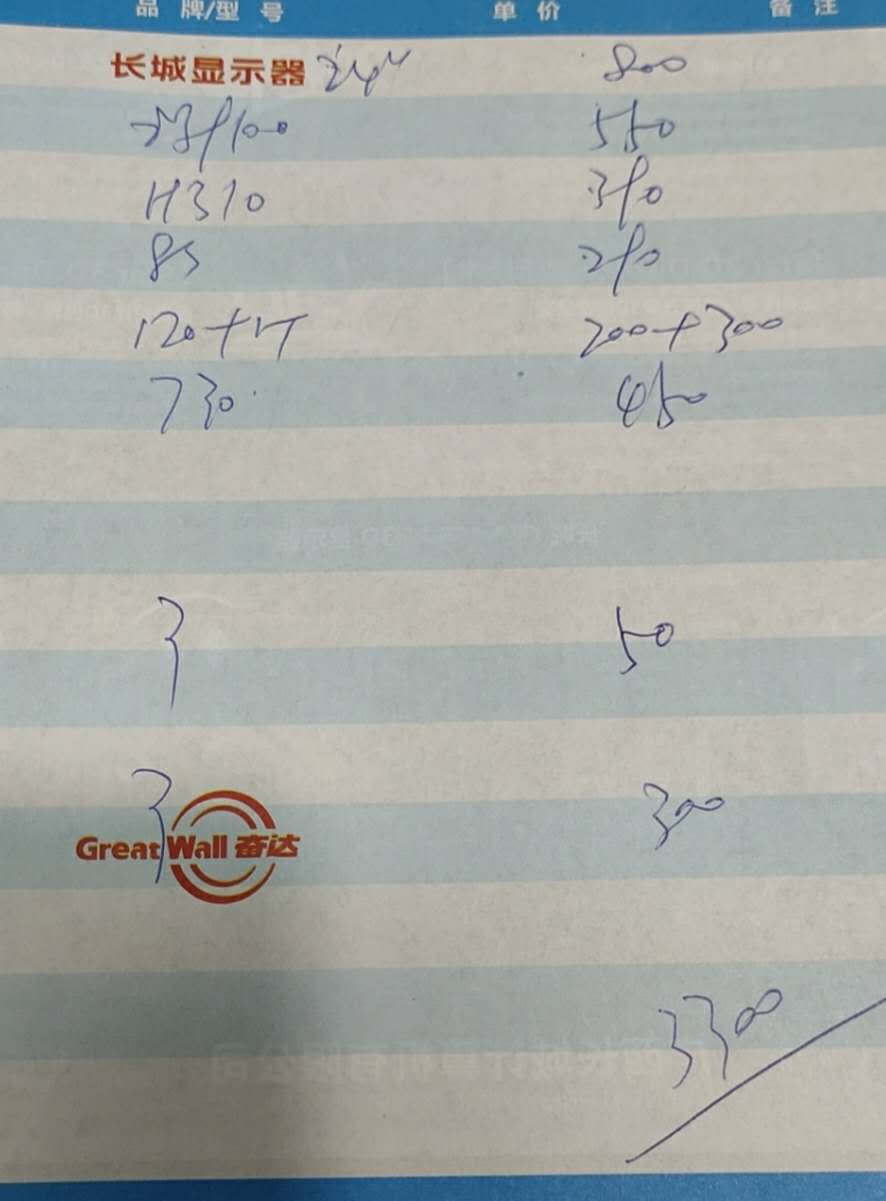 品 牌/型 号 单 价 备 注
长城显示器 24" 800
9100 550
H310 390
8G 290
120+1T 200+300
730 450
50
Great Wall 奋达 300
3300